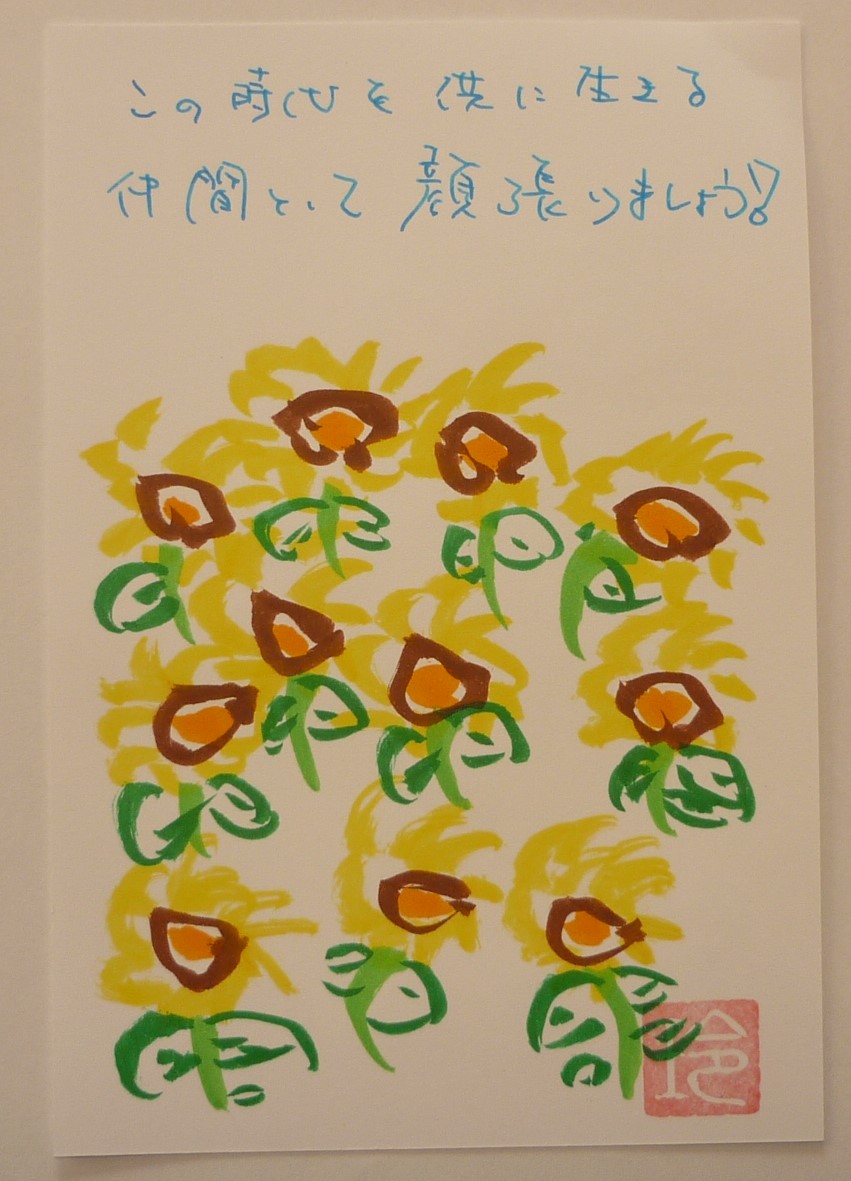 この時代を供に生きる
仲間として顔張りましょう!